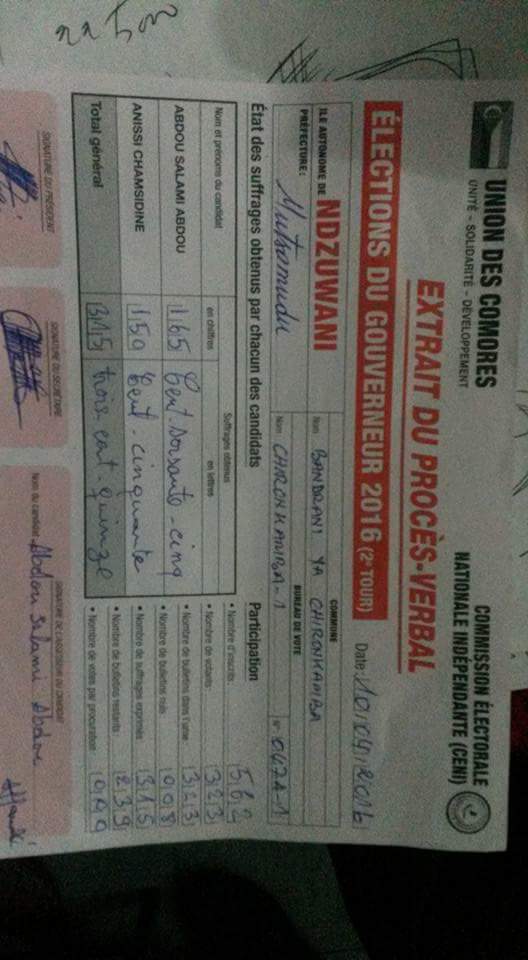 UNION DES COMORES
UNITÉ - SOLIDARITÉ - DÉVELOPPEMENT
COMMISSION ÉLECTORALE
NATIONALE INDÉPENDANTE (CENI)
EXTRAIT DU PROCÈS-VERBAL
ÉLECTIONS DU GOUVERNEUR 2016 (2e TOUR)
Date : 10/04/2016
ILE AUTONOME DE NDZUWANI
COMMUNE
Nom BANDRANI YA CHIRONKAMBA
PRÉFECTURE : Mutsamudu
BUREAU DE VOTE
Nom CHIRONKAMBA-1
N° 042A-1
État des suffrages obtenus par chacun des candidats
Participation
Nom et prénoms du candidat
Suffrages obtenus
en chiffres
en lettres
ABDOU SALAMI ABDOU 165 Cent-soixante-cinq
ANISSI CHAMSIDINE 150 Cent-cinquante
Total général 315 trois-cent-quinze
• Nombre d'inscrits : 562
• Nombre de votants : 323
• Nombre de bulletins dans l'urne 323
• Nombre de bulletins nuls 008
• Nombre de suffrages exprimés 315
• Nombre de bulletins restants : 239
• Nombre de votes par procuration :
SIGNATURE DU PRÉSIDENT
SIGNATURE DU SECRÉTAIRE
SIGNATURE DE L'ASSESSEUR DU CANDIDAT
Nom du candidat : Abdou Salami Abdou